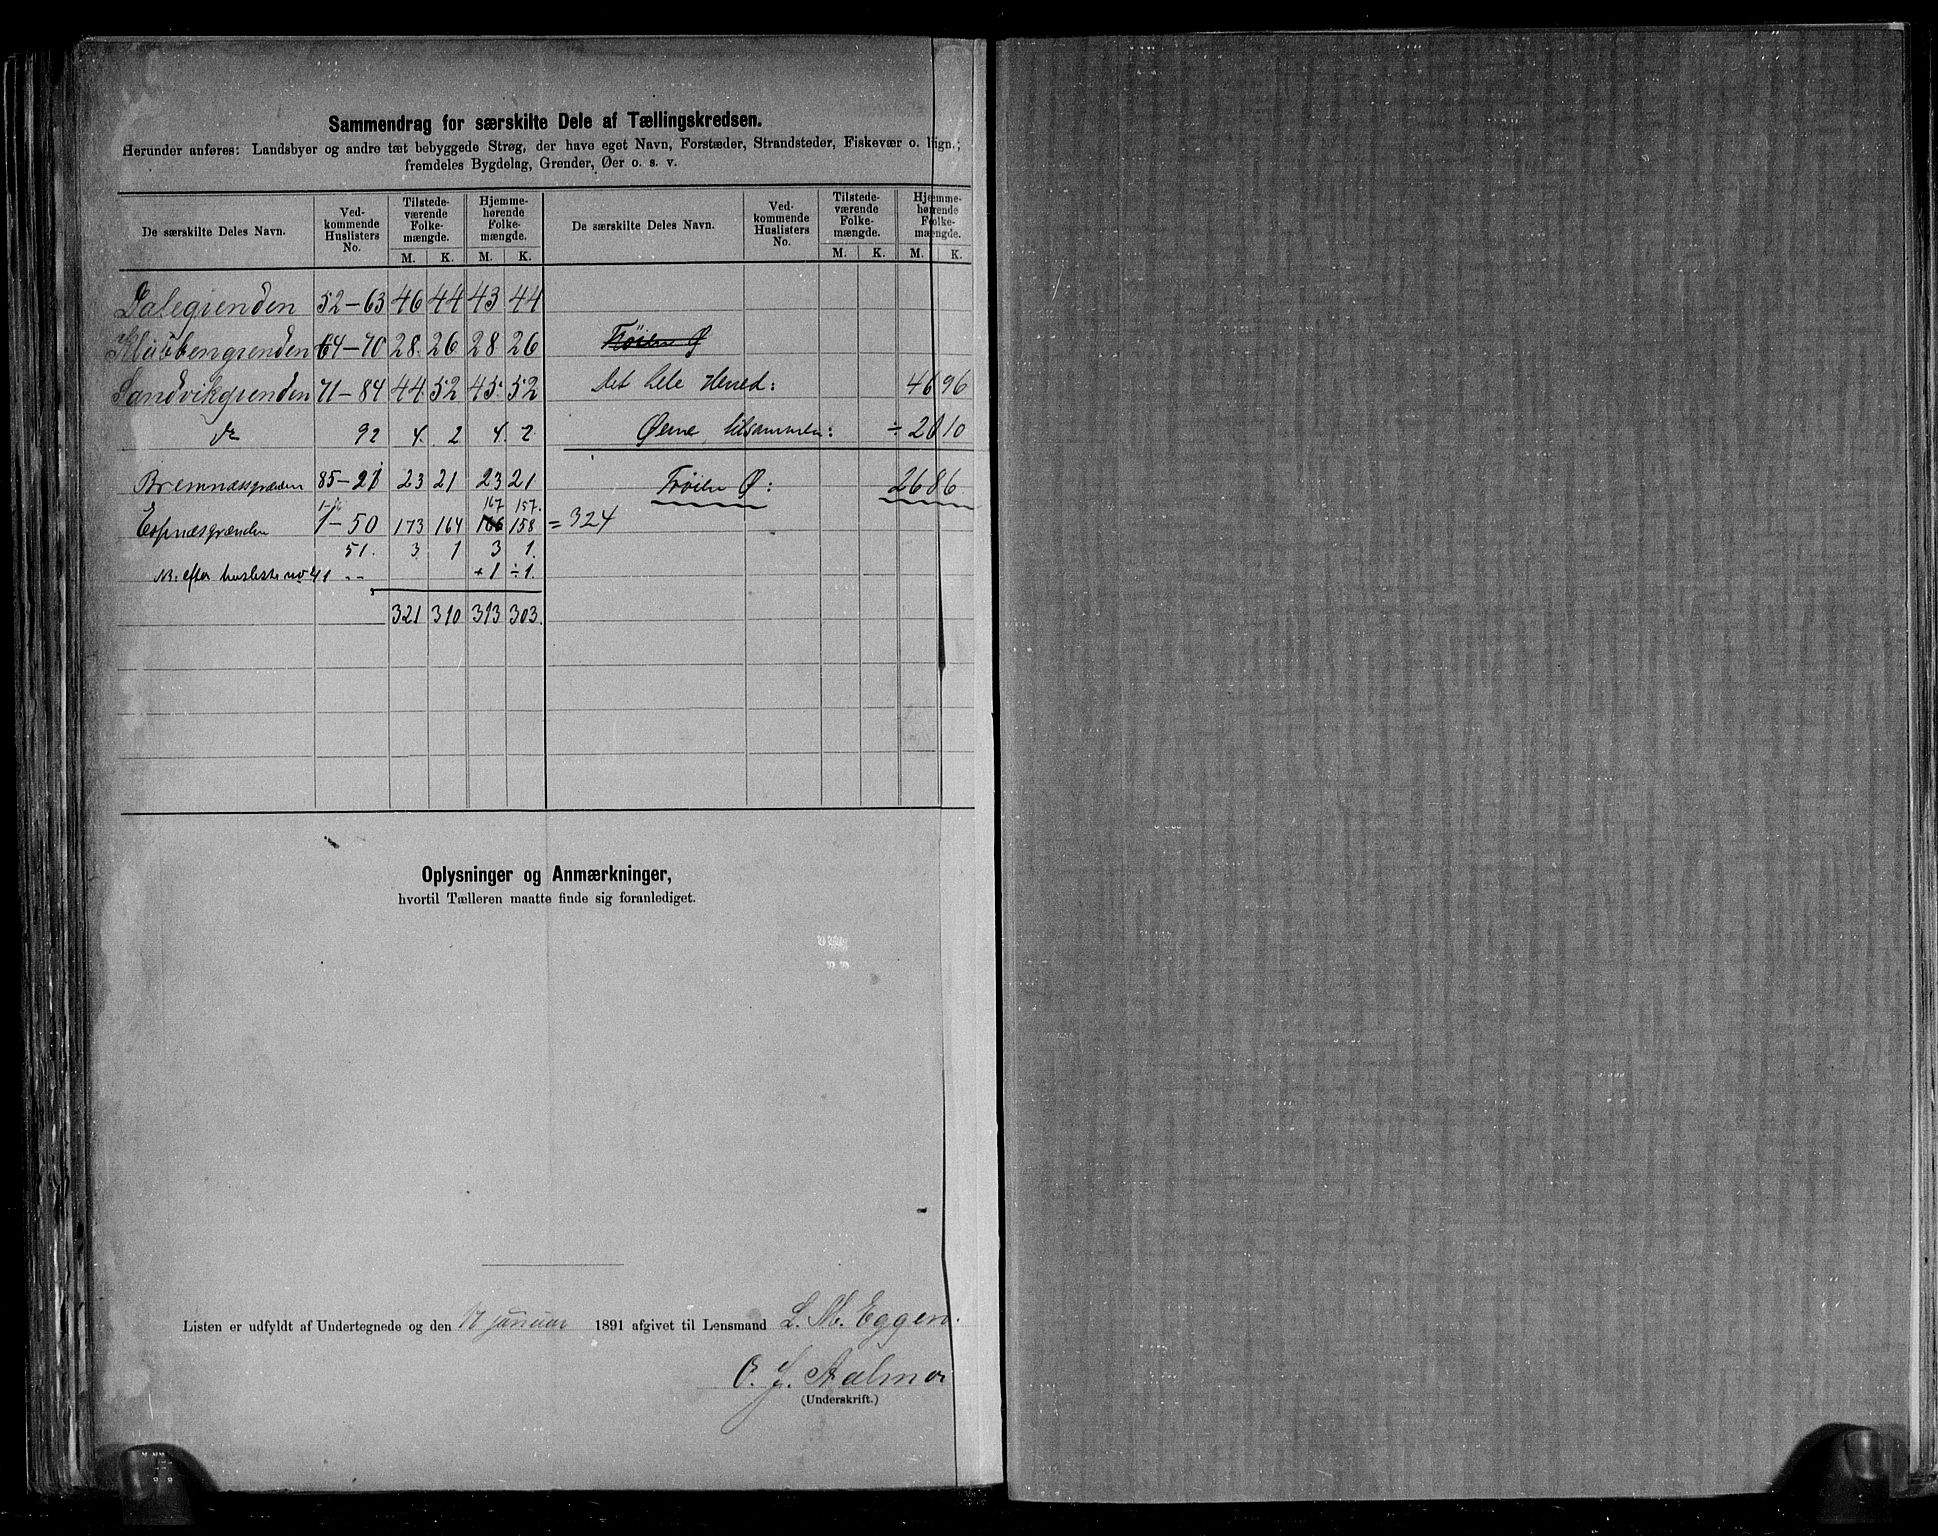 Sammendrag for særskilte Dele af Tællingskredsen.
Herunder anføres: Landsbyer og andre tæt bebyggede Strøg, der have eget Navn, Forstæder, Strandsteder, Fiskevær o. lign.;
fremdeles Bygdelag, Grender, Øer o. s. v.
De særskilte Deles Navn. Ved-kommende Huslisters No. Tilstede-værende Folke-mængde. Hjemme-hørende Folke-mængde. De særskilte Deles Navn. Ved-kommende Huslisters No. Tilstede-værende Folke-mængde. Hjemme-hørende Folke-mængde.
M. K. M. K. M. K. M. K.
Dalegrenden 52-63 46 44 43 44
Klubbengrenden 64-70 28 26 28 26 Frøien Ø
Sandvikgrenden 71-84 44 52 45 52 Det hele Herred: 4696
do 92 4 2 4 2 Øerne tilsammen: ÷ 2010
Bremnæsgrænden 85-91 23 21 23 21 Frøien Ø: 2686
167 157
Espnæsgrænden 1-50 173 164 166 158 = 324
51. 3 1 3 1.
NB. efter husliste no 41 -- +1 ÷1.
321 310 313 303.
Oplysninger og Anmærkninger,
hvortil Tælleren maatte finde sig foranlediget.
Listen er udfyldt af Undertegnede og den 17 januar 1891 afgivet til Lensmand L. M. Eggen.
O. J. Aalmo
(Underskrift.)